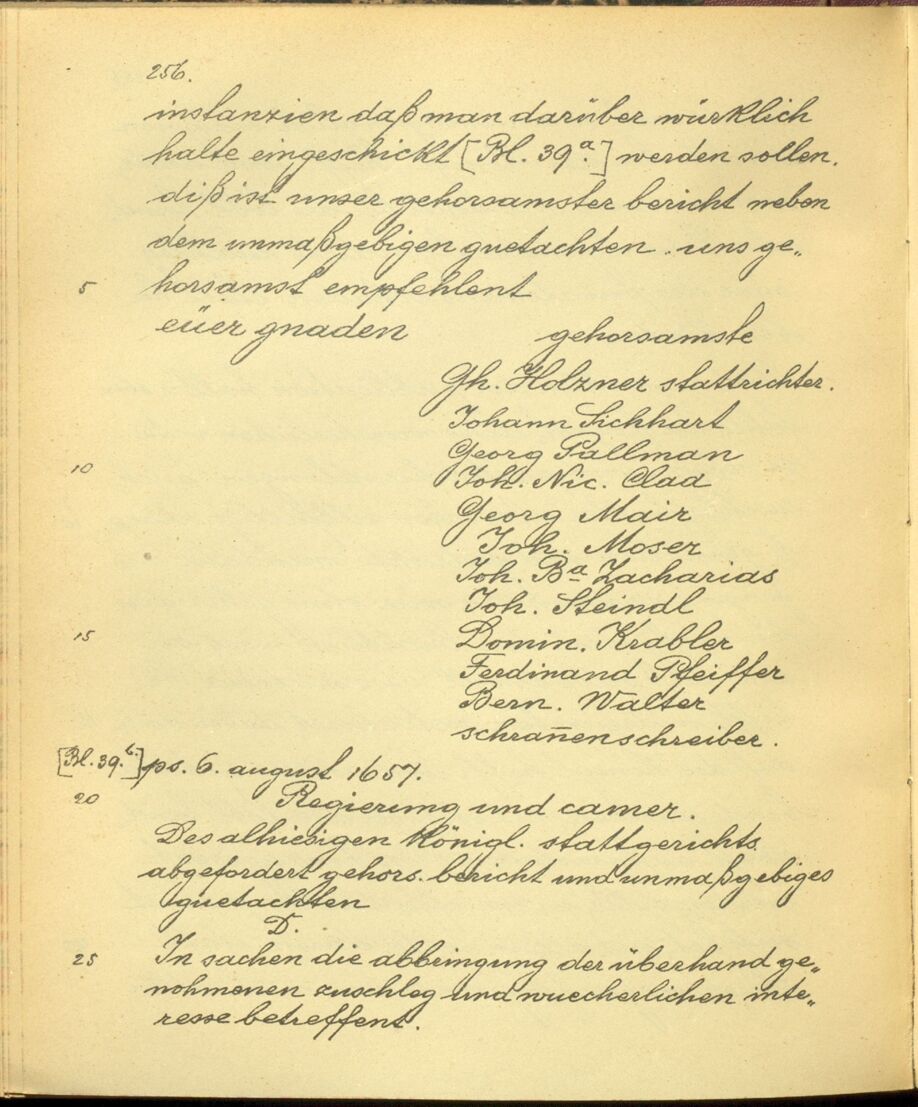 256.
instanzien daß man darüber würklich
halte eingeschickt [Bl. 39a.] werden sollen.
diß ist unser gehorsamster bericht neben
dem unmaßgebigen guetachten. uns ge„
5 horsamst empfehlent
eüer gnaden gehorsamste
Gh. Holzner stattrichter.
Johann Sichhart
Georg Pallman
10 Joh. Nic. Clad
Georg Mair
Joh. Moser
Joh. Ba Zacharias
Joh. Steindl
15 Domin. Krabler
Ferdinand Pfeiffer
Bern. Walter
schran̄enschreiber.
[Bl. 39.b.] ps. 6. august 1657.
20 Regierung und camer.
Des alhiesigen königl. stattgerichts
abgefordert gehors. bericht und unmaßgebiges
guetachten
D.
25 In sachen die abbringung der überhand ge„
nohmenen zuschleg und wuecherlichen inte„
resse betreffent.